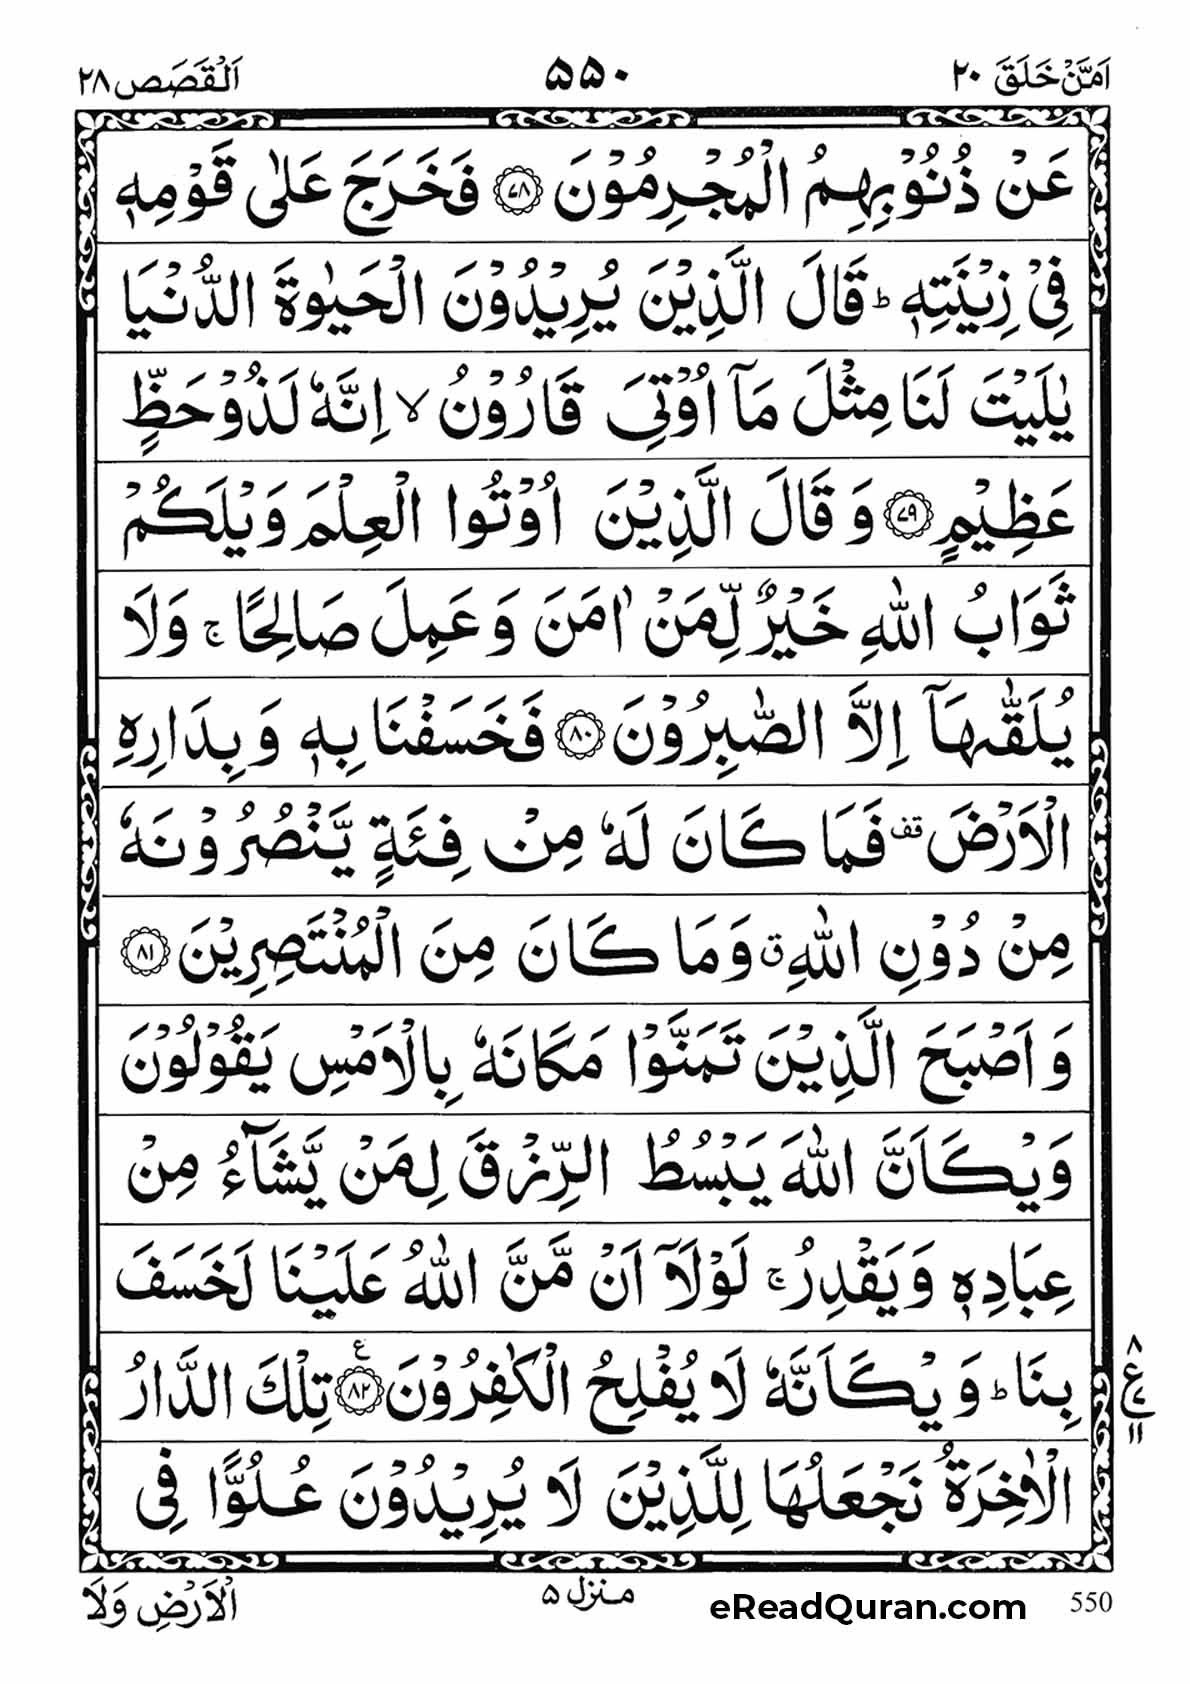 اَمَّنْ خَلَقَ ٢٠ ۵۵۰ اَلْقَصَص ٢٨
عَنْ ذُنُوْبِهِمُ الْمُجْرِمُوْنَ ﴿۷۸﴾ فَخَرَجَ عَلٰى قَوْمِهٖ
فِيْ زِيْنَتِهٖ ؕ قَالَ الَّذِيْنَ يُرِيْدُوْنَ الْحَيٰوةَ الدُّنْيَا
يٰلَيْتَ لَنَا مِثْلَ مَاۤ اُوْتِيَ قَارُوْنُ ۙ اِنَّهٗ لَذُوْ حَظٍّ
عَظِيْمٍ ﴿۷۹﴾ وَ قَالَ الَّذِيْنَ اُوْتُوا الْعِلْمَ وَيْلَكُمْ
ثَوَابُ اللّٰهِ خَيْرٌ لِّمَنْ اٰمَنَ وَ عَمِلَ صَالِحًا ۚ وَلَا
يُلَقّٰىهَاۤ اِلَّا الصّٰبِرُوْنَ ﴿۸۰﴾ فَخَسَفْنَا بِهٖ وَ بِدَارِهِ
الْاَرْضَ قف فَمَا كَانَ لَهٗ مِنْ فِئَةٍ يَّنْصُرُوْنَهٗ
مِنْ دُوْنِ اللّٰهِ ق وَمَا كَانَ مِنَ الْمُنْتَصِرِيْنَ ﴿۸۱﴾
وَ اَصْبَحَ الَّذِيْنَ تَمَنَّوْا مَكَانَهٗ بِالْاَمْسِ يَقُوْلُوْنَ
وَيْكَاَنَّ اللّٰهَ يَبْسُطُ الرِّزْقَ لِمَنْ يَّشَآءُ مِنْ
عِبَادِهٖ وَيَقْدِرُ ۚ لَوْلَاۤ اَنْ مَّنَّ اللّٰهُ عَلَيْنَا لَخَسَفَ
بِنَا ؕ وَيْكَاَنَّهٗ لَا يُفْلِحُ الْكٰفِرُوْنَ ﴿۸۲﴾ ع تِلْكَ الدَّارُ
٨ ع ٧ ١١
الْاٰخِرَةُ نَجْعَلُهَا لِلَّذِيْنَ لَا يُرِيْدُوْنَ عُلُوًّا فِي
الْاَرْضِ وَلَا منزل ۵ eReadQuran.com 550